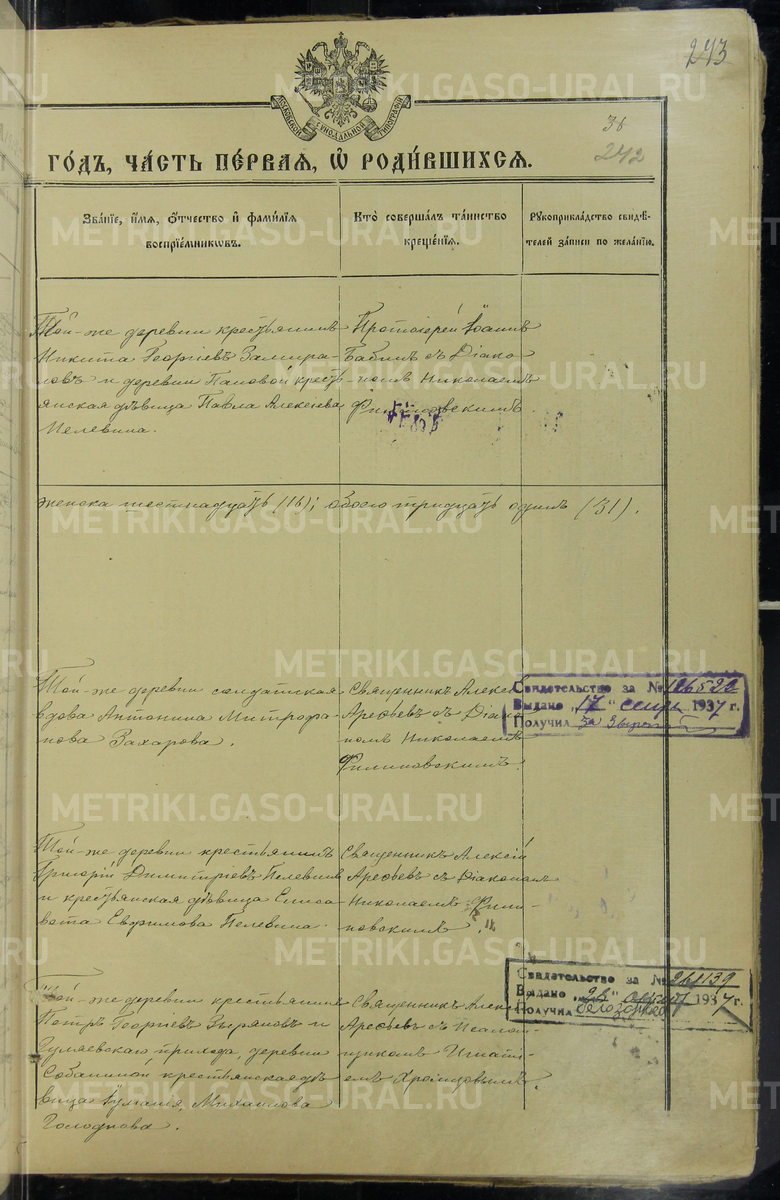 243
МОСКОВСКОЙ СѴНОДАЛЬНОЙ ТИПОГРАФІИ
36
242
ГО́ДЪ, ЧА́СТЬ ПЕ́РВАѦ, Ѽ РОДИ́ВШИХСѦ.
Зва́нїе, и́мѧ, ѻ́тчество и҆ фами́лїѧ
воспрїе́мникѡвъ.
Кто̀ соверша́лъ та́инство
креще́нїѧ.
Рꙋкоприкла́дство свидѣ́-
телей за́писи по жела́нїю.
Той-же деревни крестьянинъ
Никита Георгіевъ Замира-
ловъ и деревни Пановой кресть-
янская дѣвица Павла Алексѣева
Пелевина.
Протоіерей Іоаннъ
Бабинъ съ Діако-
номъ Николаемъ
женска шестнадцать (16); обоего тридцать одинъ (31).
Той-же деревни солдатская
вдова Антонина Митрофа-
нова Захарова.
Священникъ Алексѣй
Арефьевъ съ Діако-
номъ Николаемъ
Филиповскимъ.
Свидетельство за №
Выдано „17“ сент 1937 г.
Получил за
Той-же деревни крестьянинъ
Григорій Димитріевъ Пелевинъ
и крестьянская дѣвица Елиса-
вета Евфимова Пелевина.
Священникъ Алексій
Арефьевъ съ Діакономъ
Николаемъ Фили-
повскимъ.
Той-же деревни крестьянинъ
Петръ Георгіевъ Зыряновъ и
Гуляевскаго прихода, деревни
Собаниной крестьянская дѣ-
вица Іулианія Михаилова
Голоднова.
Священникъ Алексѣй
Арефьевъ съ Псалом-
щикомъ Игнаті-
емъ Хромцовымъ.
Свидетельство за № 261139
Выдано „28“ август 1937 г.
Получил
METRIKI.GASO-URAL.RU